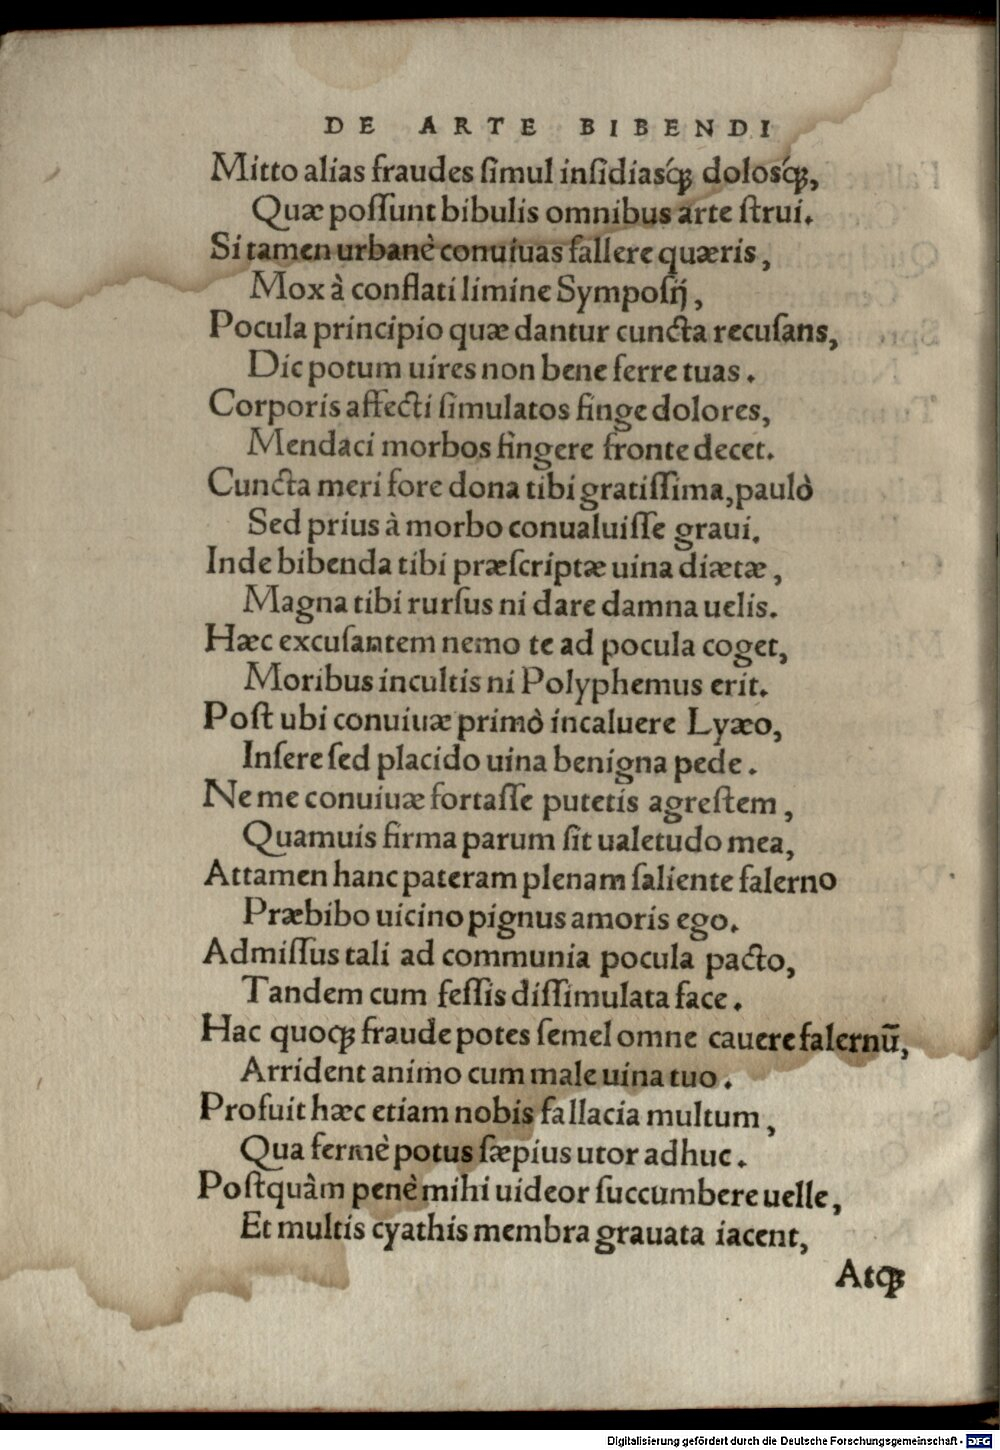 DE ARTE BIBENDI
Mitto alias fraudes ſimul inſidiasq́ꝫ dolosq́ꝫ,
Quæ poſſunt bibulis omnibus arte ſtrui.
Si tamen urbanè conuiuas fallere quæris,
Mox à conflati limine Sympoſij,
Pocula principio quæ dantur cuncta recuſans,
Dic potum uires non bene ferre tuas.
Corporis affecti ſimulatos finge dolores,
Mendaci morbos fingere fronte decet.
Cuncta meri fore dona tibi gratiſſima, paulò
Sed prius à morbo conualuiſſe graui.
Inde bibenda tibi præſcriptæ uina diætæ,
Magna tibi rurſus ni dare damna uelis.
Hæc excuſantem nemo te ad pocula coget,
Moribus incultis ni Polyphemus erit.
Poſt ubi conuiuæ primò incaluere Lyæo,
Inſere ſed placido uina benigna pede.
Ne me conuiuæ fortaſſe putetis agreſtem,
Quamuis firma parum ſit ualetudo mea,
Attamen hanc pateram plenam ſaliente falerno
Præbibo uicino pignus amoris ego.
Admiſſus tali ad communia pocula pacto,
Tandem cum feſſis diſſimulata face.
Hac quoqꝫ fraude potes ſemel omne cauere falernū,
Arrident animo cum male uina tuo.
Profuit hæc etiam nobis fallacia multum,
Qua fermè potus ſæpius utor adhuc.
Poſtquàm penè mihi uideor ſuccumbere uelle,
Et multis cyathis membra grauata iacent,
Atqꝫ
Digitalisierung gefördert durch die Deutsche Forschungsgemeinschaft - DFG